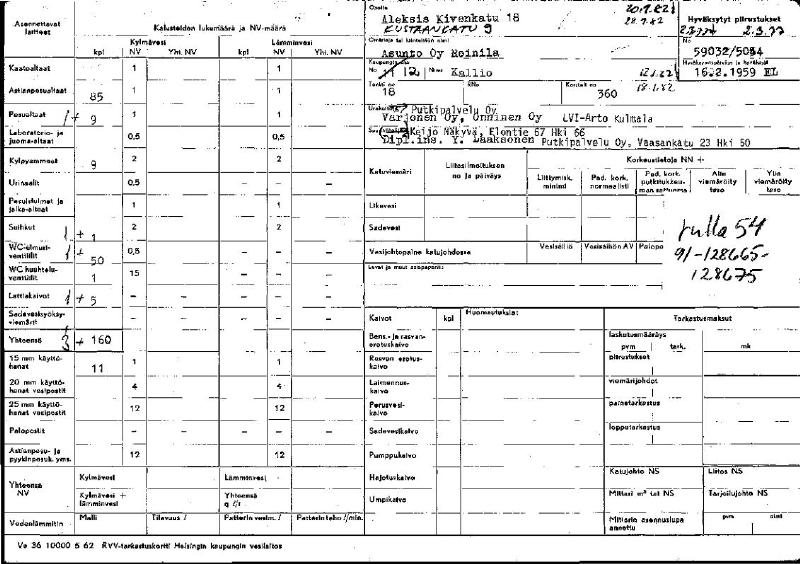 Asennettavat laitteet
Kalusteiden lukumäärä ja NV-määrä
kpl
Kylmävesi
NV
Yht. NV
kpl
Lämminvesi
NV
Yht. NV
Kaatoaltaat 1 1
Astianpesualtaat 85 1 1
Pesualtaat 1 + 9 1 1
Laboratorio- ja juoma-altaat 0,5 0,5
Kylpyammeet 9 2 2
Urinaalit 0,5 –
Pesuistuimet ja jalka-altaat 1 1
Suihkut 1 + 1 2 2
WC-elmuri-venttiilit 1 + 50 0,5 –
WC huuhtelu-venttiilit 1 15 –
Lattiakaivot 1 + 5 – – – –
Sadevesikyöksy-viemärit – – – –
Yhteensä 3 + 160 – –
15 mm käyttö-hanat 11 1 1
20 mm käyttö-hanat vesipostit 4 4
25 mm käyttö-hanat vesipostit 12 12
Palopostit – – – –
Astianpesu- ja pyykinpesuk. yms. 12 12
Yhteensä NV
Kylmävesi
Lämminvesi
Kylmävesi + lämminvesi
Yhteensä q l/s
Vedenlämmitin
Malli
Tilavuus l
Patterin vesim. l
Patterin teho l/min.
Ve 36 10000 6 62 RVV-tarkastuskortti Helsingin kaupungin vesilaitos
Osoite
Aleksis Kivenkatu 18
EURAANKATU 9
28.9.82
Omistaja tai kiinteistön nimi
Asunto Oy Roinila
Kaupunginosa
No 12 Nimi Kallio
Tontti no 18
Kortteli no 360
18.1.82
Hyväksytyt piirustukset
2.3.77
No 59032/5084
1612.1959 EL
Urakoitsija
Putkipalvelu Oy
Varjonen Oy, Onninen Oy LVI-Arto Kulmala
Keijo Näkyvä, Elontie 67 Hki 66
Dipl.ins. Y. Laaksonen Putkipalvelu Oy, Vaasankatu 23 Hki 50
Katuviemäri
Liitosilmoituksen no ja päiväys
Korkeustietoja NN +
Liittymisk. minimi
Pad. kork. normaalisti
Pad. kork. putkitukkeu-man sattuessa
Alin viemäröity taso
Ylin viemäröity taso
Likavesi
Sadevesi
Vesijohtopaine katujohdossa
Vesisäiliö
Vesisäiliön AV
Palopo
Luvat ja muut asiapaperit
rulla 54
91-128665-
128675
Kaivot
kpl
Huomautuksia:
Tarkastusmaksut
Bens.- ja rasvan-erotuskaivo
Rasvan erotus-kaivo
Laimennus-kaivo
Perusvesi-kaivo
Sadevesikaivo
Pumppukaivo
Hajotuskaivo
Umpikaivo
laskutusmääräys
pvm
tark.
mk
piirustukset
viemärijohdot
painetarkastus
lopputarkastus
Katujohto NS
Liitos NS
Mittari m³ tai NS
Tarjoilujohto NS
Mittarin asennuslupa annettu
pvm
nimi